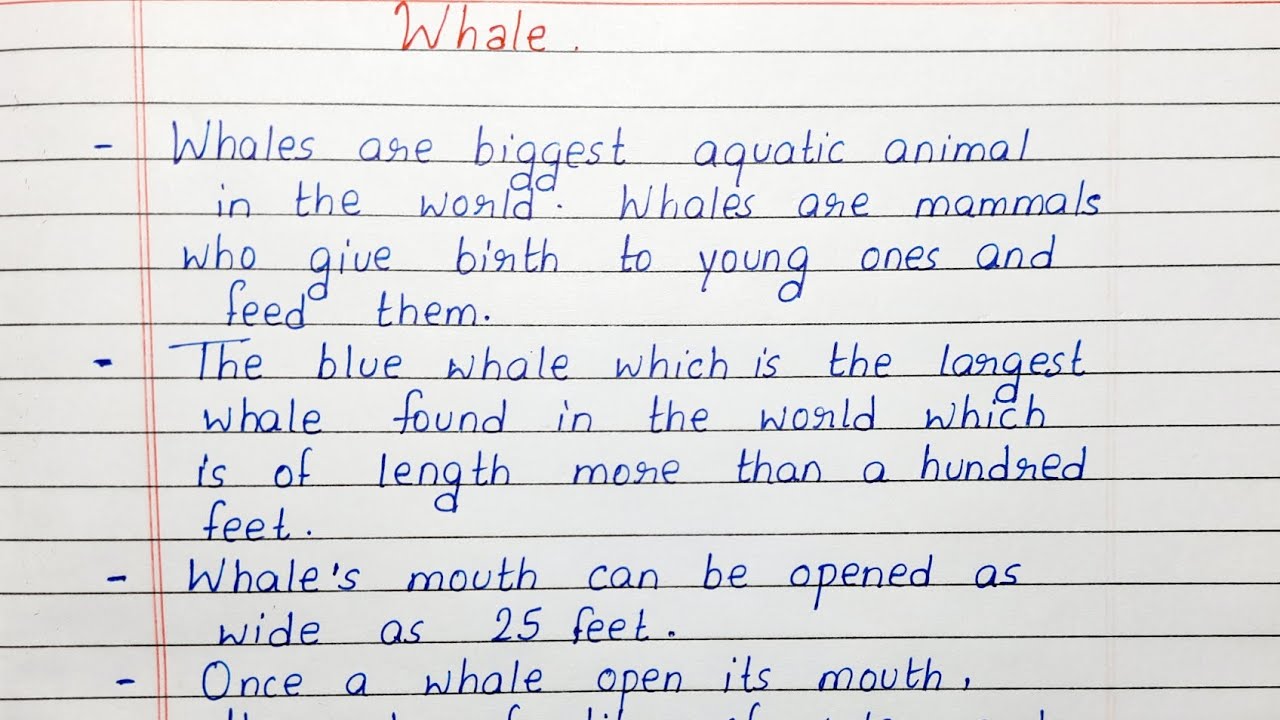 Whale.
- Whales are biggest aquatic animal
in the world. Whales are mammals
who give birth to young ones and
feed them.
- The blue whale which is the largest
whale found in the world which
is of length more than a hundred
feet.
- Whale's mouth can be opened as
wide as 25 feet.
- Once a whale open its mouth,